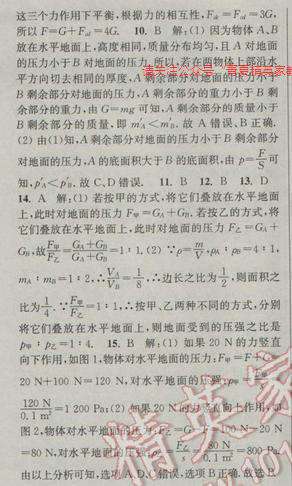 这三个力作用下平衡,根据力的相互性,F_{dc}=F_{cd}=3G,
所以F=G+F_{cd}=4G. 10. B 解:(1)因为物体A、B
放在水平地面上,高度相同,质量分布均匀,且A对地面
的压力小于B对地面的压力.所以,若在两物体上部沿水
平方向切去相同的厚度,A剩余部分对地面的压力小于B
剩余部分对地面的压力,A剩余部分的重力小于B剩
余部分的重力,由G=mg可知,A剩余部分的质量小于
B剩余部分的质量,即m′_A<m′_B.故A错误、B正确.
(2)由(1)知,A剩余部分对地面的压力小于B剩余部分
对地面的压力,A的底面积大于B的底面积,由p=F/S可
知,p′_A<p′_B.故C、D错误. 11. B 12. B 13. D
14. A 解:(1)若按甲的方式,将它们叠放在水平地面
上,此时对地面的压力F_甲=G_A+G_B.若按乙的方式,将
它们叠放在水平地面上,此时对地面的压力F_乙=G_A+
G_B,故F_甲/F_乙=(G_A+G_B)/(G_A+G_B)=1:1.(2)∵ρ=m/V,ρ_A:ρ_B=4:1,
m_A:m_B=1:2,∴V_A/V_B=1/8.∴边长之比为1/2,则面积之
比为1/4.∵F_甲/F_乙=1:1,∴按甲、乙两种不同的方式,分别
将它们叠放在水平地面上,则地面受到的压强之比是
p_甲:p_乙=1:4. 15. B 解:(1)如果20 N的力竖直
向下作用,如图1,物体对水平地面的压力:F_甲=F+G=
20 N+100 N=120 N,对水平地面的压强:p_甲=
120 N/0.1 m²=1 200 Pa;(2)如果20 N的力竖直向上作用,如
图2,物体对水平地面的压力:F_乙=G-F=100 N-20 N
=80 N,对水平地面的压强:p_乙=F_乙/S=80 N/0.1 m²=800 Pa.
由以上分析可知,选项A、D、C错误,选项B正确.故选B.
精英家